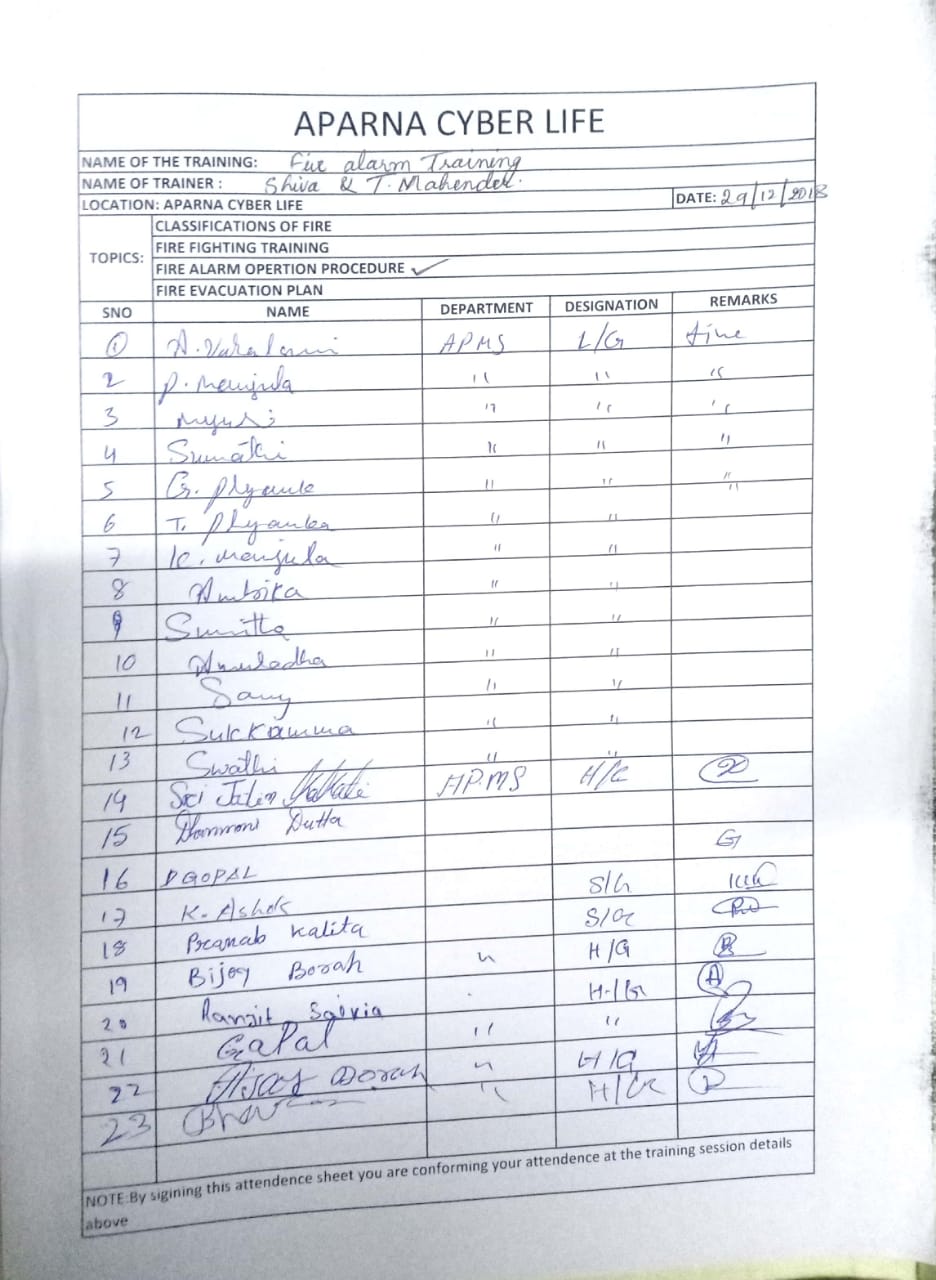 APARNA CYBER LIFE
NAME OF THE TRAINING: Fire alarm Training
NAME OF TRAINER : Shiva & T. Mahender.
LOCATION: APARNA CYBER LIFE DATE: 29/12/2018
TOPICS:
CLASSIFICATIONS OF FIRE
FIRE FIGHTING TRAINING
FIRE ALARM OPERTION PROCEDURE ✓
FIRE EVACUATION PLAN
SNO NAME DEPARTMENT DESIGNATION REMARKS
1 APMS L/G fine
2 P. Manjula " " "
3 " " "
4 Sumathi " " "
5 G. " " "
6 T. " "
7 K. Manjula " "
8 Ambika " "
9 Sunitha " "
10 Anuladha " "
11 " "
12 Sukkamma " "
13 Swathi " "
14 Sri Jatin AP.MS H/G
15 Dutta
16 D GOPAL G
17 K. Ashok S/G
18 Pranab Kalita S/G
19 Bijoy Borah " H/G B
20 Ranjit Saikia H/G A
21 GaPal " "
22 Borah " H/G
23 " H/G
NOTE:By sigining this attendence sheet you are conforming your attendence at the training session details
above